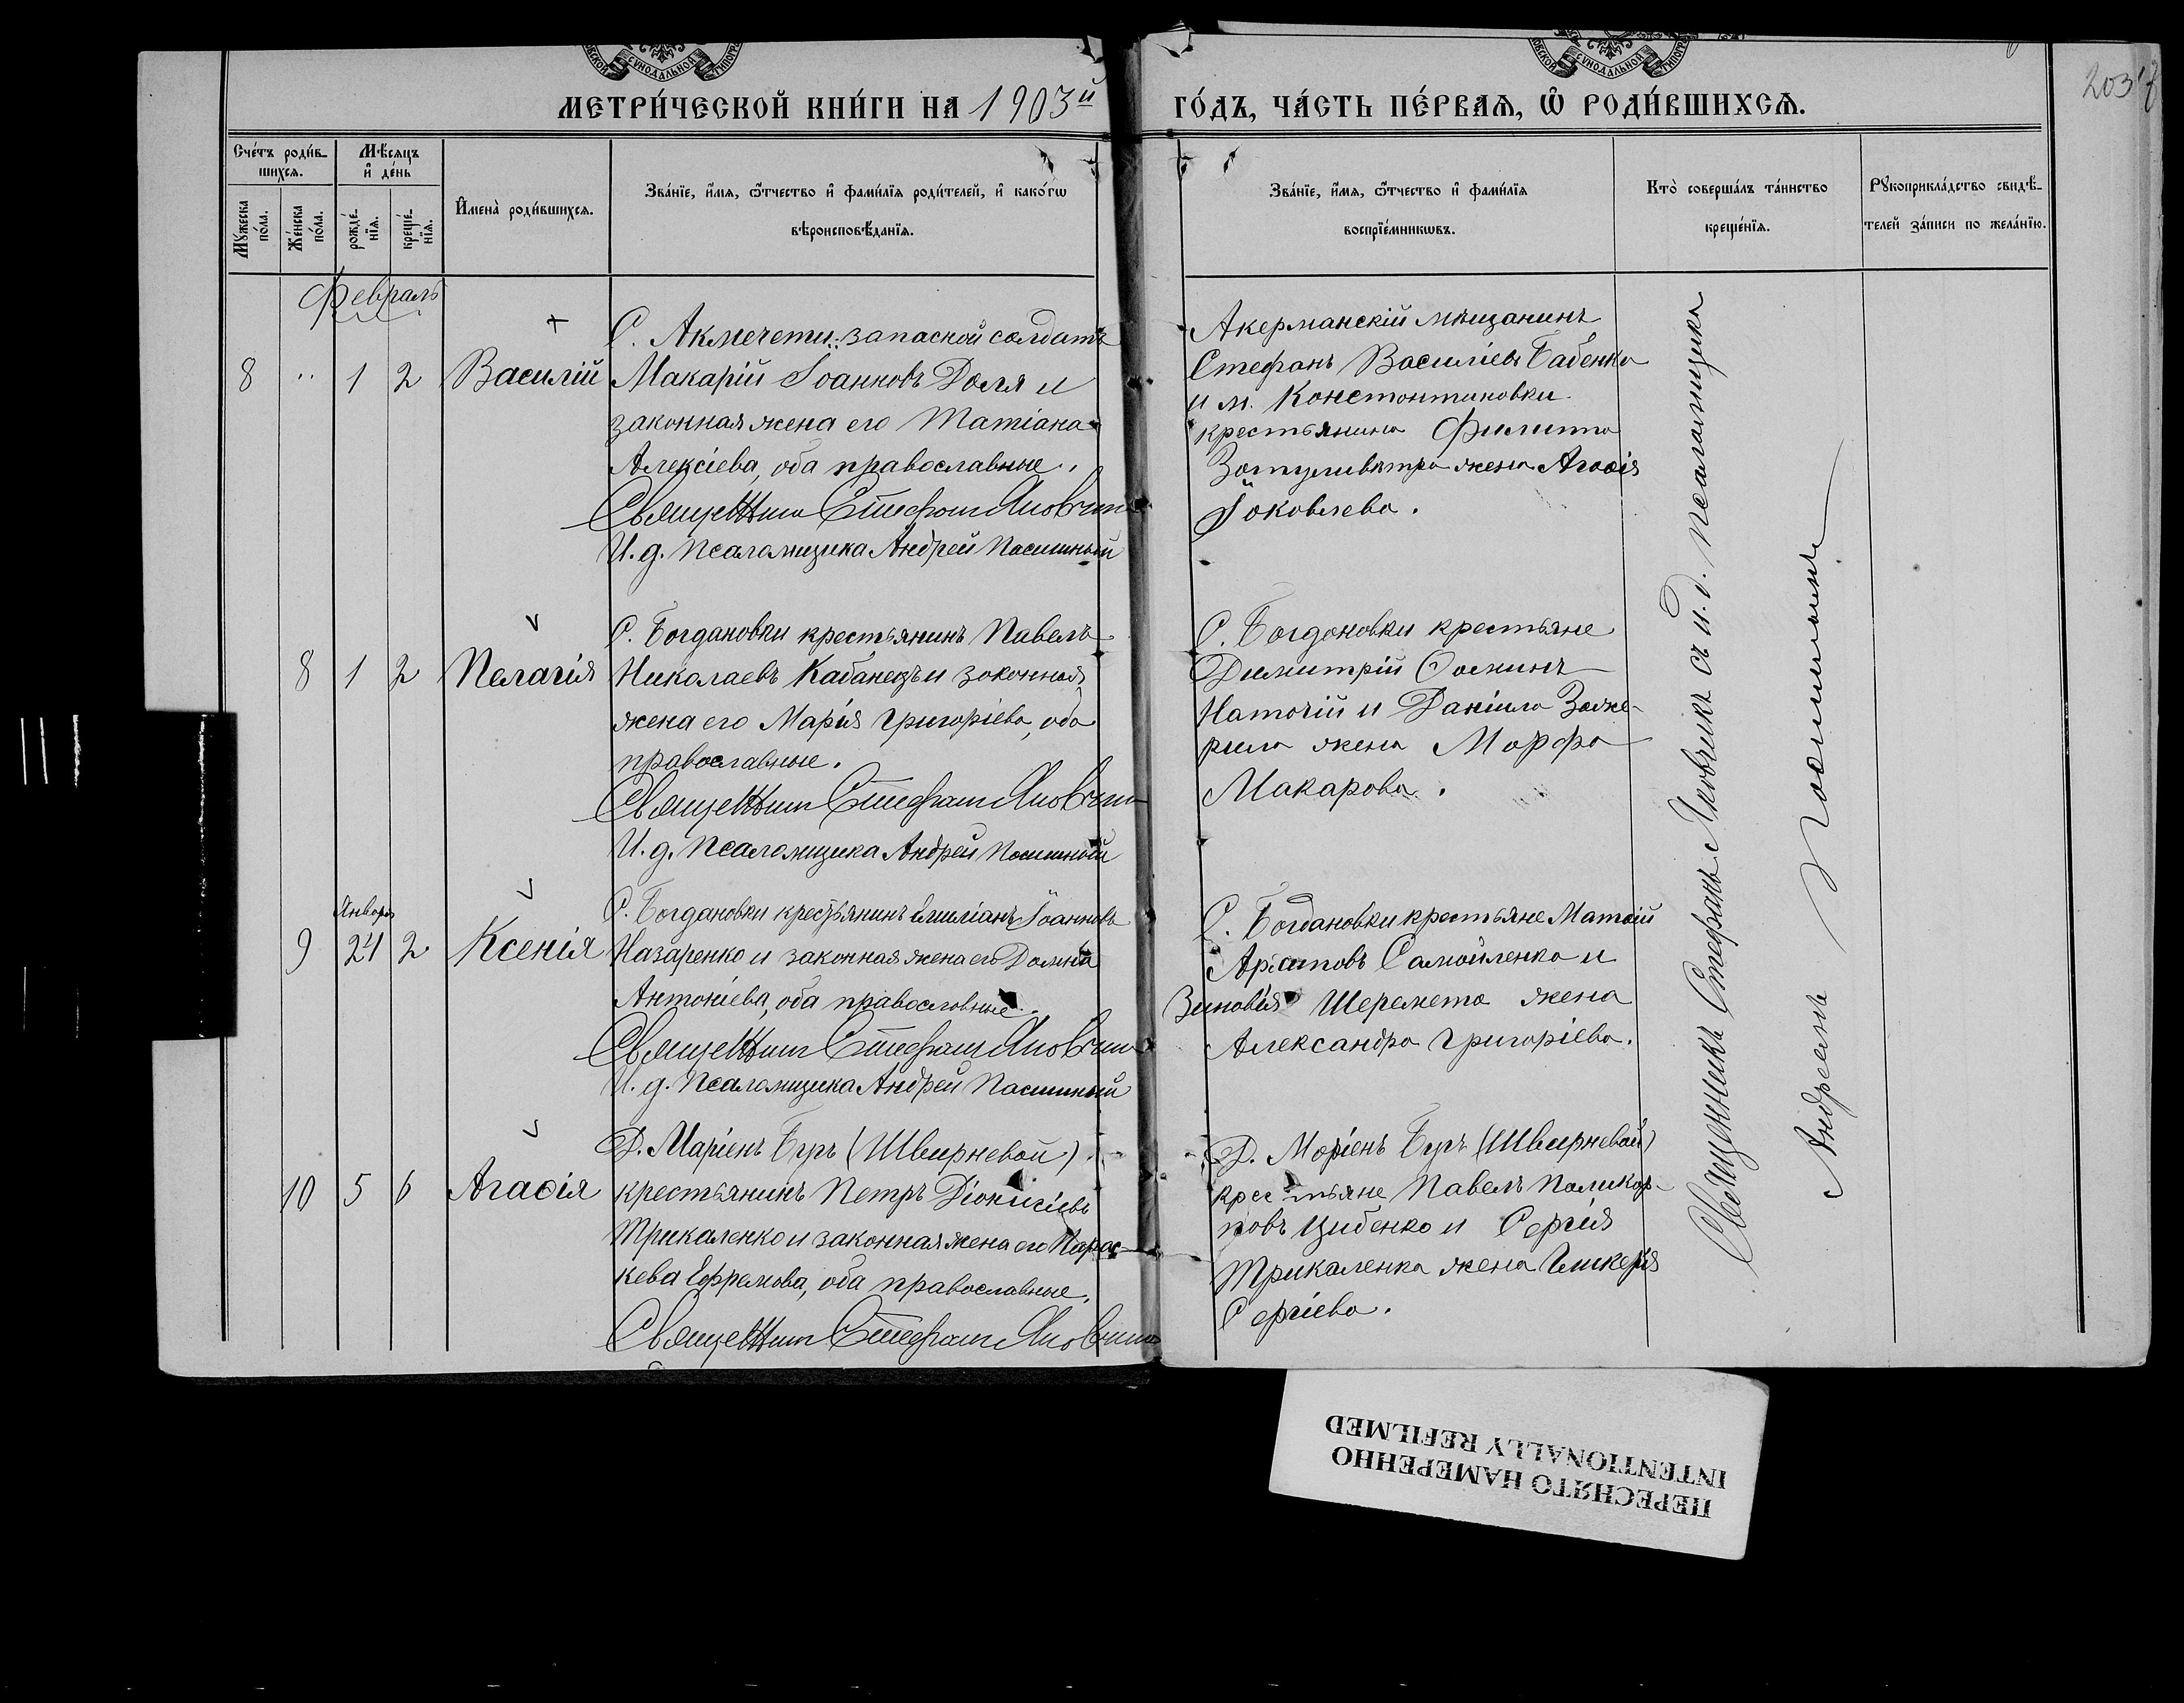 МЕТРИ́ЧЕСКОЙ КНИ́ГИ НА 1903й
ГО́ДЪ, ЧА́СТЬ ПЕ́РВАѦ, Ѽ РОДИ́ВШИХСѦ.
203
Сче́тъ роди́в-
шихсѧ.
Мѣ́сѧцъ
и҆ де́нь
Мꙋ́жеска
по́ла.
Же́нска
по́ла.
рожде́-
нїѧ.
креще́-
нїѧ.
И҆мена̀ роди́вшихсѧ.
Зва́нїе, и҆́мѧ, ѻ҆́тчество и҆ фами́лїѧ роди́телей, и҆ како́гѡ
вѣроисповѣ́данїѧ.
Зва́нїе, и҆́мѧ, ѻ҆́тчество и҆ фами́лїѧ
воспрїе́мникѡвъ.
Кто̀ соверша́лъ та́инство
креще́нїѧ.
Рꙋкоприкла́дство свидѣ́-
телей за́писи по жела́нїю.
Февраль
8 " 1 2 Василій
С. Акмечети запасной солдатъ
Макарій Іоанновъ Доля и
законная жена его Татіана
Алексіева, оба православные.
Священник Стефан Яновчик
И. д. Псаломщика Андрей Пасишный
Акерманскій мѣщанинъ
Стефанъ Василіевъ Бабенко
и м. Константиновки
крестьянина Филиппа
жена Агаѳія
Іаковлева.
8 1 2 Пелагія
С. Богдановки крестьянинъ Павелъ
Николаевъ Кабанецъ и законная
жена его Марія Григоріева, оба
православные.
Священник Стефан Яновчик
И. д. Псаломщика Андрей Пасишный
С. Богдановки крестьяне
Димитрій Ѳоминъ
и Даніила
жена Марфа
Макарова.
Января
9 24 2 Ксенія
С. Богдановки крестьянинъ Емиліанъ Іоанновъ
Назаренко и законная жена его Домна
Антоніева, оба православные.
Священник Стефан Яновчик
И. д. Псаломщика Андрей Пасишный
С. Богдановки крестьяне Матѳій
Самойленко и
Зиновія Шеремета жена
Александра Григоріева.
10 5 6 Агаѳія
Д. Маріенъ Буръ (Швирневой)
крестьянинъ Петръ Діонисіевъ
Трикаленко и законная жена его Парас-
кева Ефремова, оба православные.
Священник Стефан Яновчик
Д. Маріенъ Буръ (Швирневой)
крестьяне Павелъ Поликар-
повъ Цибенко и Сергія
Трикаленка жена Гликерія
Сергіева.
Священникъ Стефанъ Яновчикъ съ и. д. псаломщика
Андреемъ Пасишнымъ
ПЕРЕСНЯТО НАМЕРЕННО
INTENTIONALLY REFILMED